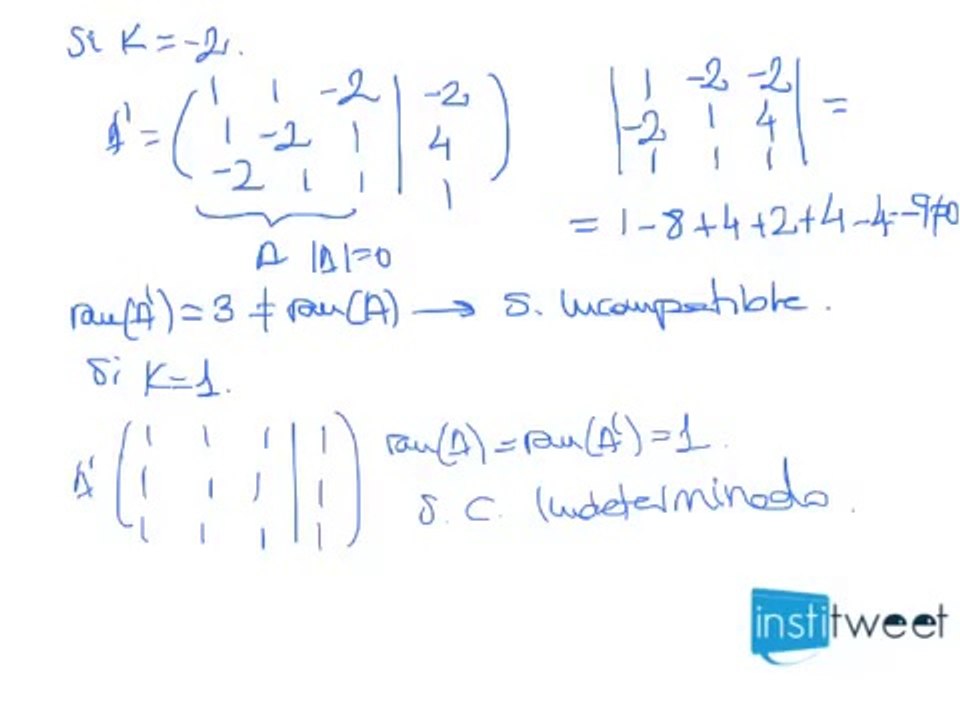 Si K = -2.
A' = ( 1 1 -2 | -2 )
1 -2 1 | 4
-2 1 1 | 1
A |A|=0
| 1 -2 -2 | =
| -2 1 4 |
| 1 1 1 |
= 1-8+4+2+4-4--9≠0
ran(A') = 3 ≠ ran(A) → S. Incompatible.
Si K=1.
A' ( 1 1 1 | 1 )
1 1 1 | 1
1 1 1 | 1
ran(A) = ran(A') = 1.
S. C. Indeterminado.
institweet